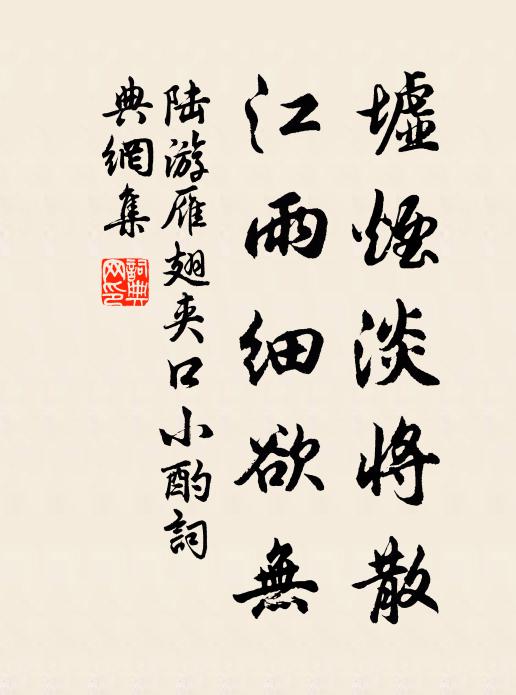 墟煙淡將散
江雨細欲無
陸游雁翅夾口小酌詞
典網集
詞典
网印